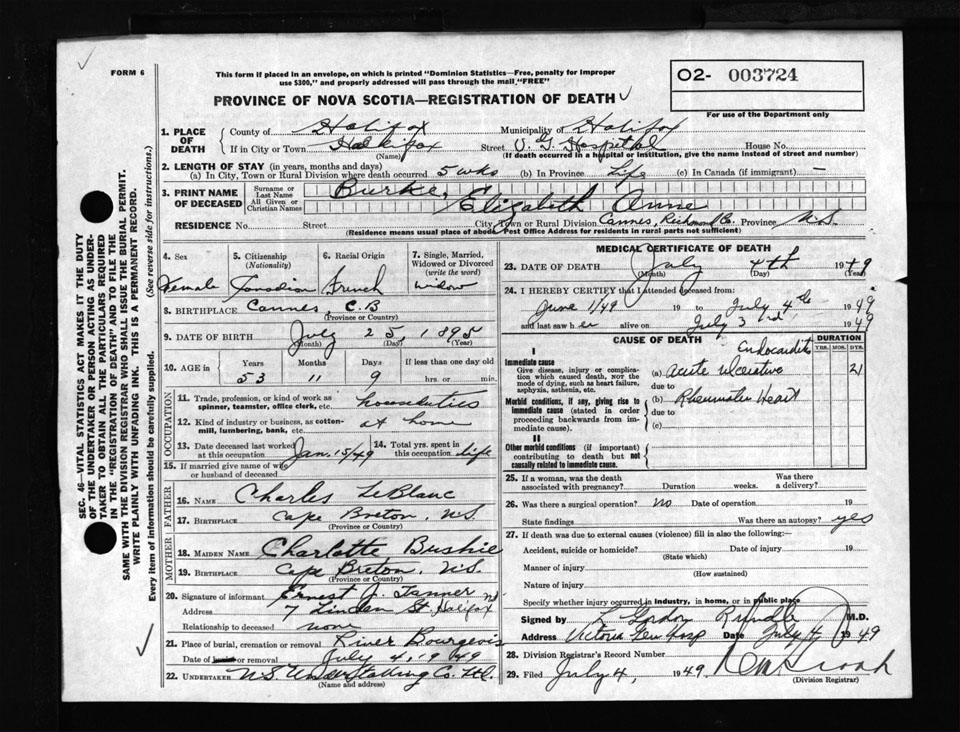 FORM 6
This form if placed in an envelope, on which is printed "Dominion Statistics—Free, penalty for improper
use $300," and properly addressed will pass through the mail "FREE"
02- 003724
For use of the Department only
PROVINCE OF NOVA SCOTIA—REGISTRATION OF DEATH
SEC. 46—VITAL STATISTICS ACT MAKES IT THE DUTY
OF THE UNDERTAKER OR PERSON ACTING AS UNDER-
TAKER TO OBTAIN ALL THE PARTICULARS REQUIRED
IN THE "REGISTRATION OF DEATH" AND TO FILE THE
SAME WITH THE DIVISION REGISTRAR WHO SHALL ISSUE THE BURIAL PERMIT.
WRITE PLAINLY WITH UNFADING INK. THIS IS A PERMANENT RECORD.
Every item of information should be carefully supplied. (See reverse side for instructions.)
1. PLACE OF DEATH
County of Halifax Municipality of Halifax
If in City or Town Halifax Street V. G. Hospital House No.
(Name) (If death occurred in a hospital or institution, give the name instead of street and number)
2. LENGTH OF STAY (in years, months and days)
(a) In City, Town or Rural Division where death occurred 5 wks (b) In Province Life (c) In Canada (if immigrant) —
3. PRINT NAME OF DECEASED
Surname or Last Name Burke,
All Given or Christian Names Elizabeth Anne
RESIDENCE No. Street City, Town or Rural Division Cannes, Richmond Co. Province N.S.
(Residence means usual place of abode. Post Office Address for residents in rural parts not sufficient)
4. Sex 5. Citizenship (Nationality) 6. Racial Origin 7. Single, Married, Widowed or Divorced (write the word)
Female Canadian French Widow
8. BIRTHPLACE Cannes, C.B
(Province or Country)
9. DATE OF BIRTH July 25, 1895
(Month) (Day) (Year)
10. AGE in Years Months Days If less than one day old
53 11 9 hrs. or min.
OCCUPATION
11. Trade, profession, or kind of work as spinner, teamster, office clerk, etc. houseduties
12. Kind of industry or business, as cotton-mill, lumbering, bank, etc. at home
13. Date deceased last worked at this occupation Jan. 15/49 14. Total yrs. spent in this occupation life
15. If married give name of wife or husband of deceased
FATHER
16. NAME Charles LeBlanc
17. BIRTHPLACE Cape Breton, N.S.
(Province or Country)
MOTHER
18. MAIDEN NAME Charlotte Bushie
19. BIRTHPLACE Cape Breton, N.S.
(Province or Country)
20. Signature of informant Ernest J. Tanner
Address 7 Linden St. Halifax
Relationship to deceased none
21. Place of burial, cremation or removal River Bourgeois
Date of burial or removal July 4, 1949
22. UNDERTAKER N.S. Undertaking Co. Ltd.
(Name and address)
MEDICAL CERTIFICATE OF DEATH
23. DATE OF DEATH July 4th 1949
(Month) (Day) (Year)
24. I HEREBY CERTIFY that I attended deceased from:
June 1/49 19 to July 4th 1949
and last saw her alive on July 3rd 1949
CAUSE OF DEATH DURATION
YRS. MOS. DYS.
I
Immediate cause
Give disease, injury or complication which caused death, NOT the mode of dying, such as heart failure, asphyxia, asthenia, etc.
Endocarditis
(a) Acute ulcerative 21
due to
Morbid conditions, if any, giving rise to immediate cause (stated in order proceeding backwards from immediate cause).
(b) Rheumatic Heart
due to
(c)
II
Other morbid conditions (if important) contributing to death but not causally related to immediate cause.
25. If a woman, was the death associated with pregnancy? Duration weeks. Was there a delivery?
26. Was there a surgical operation? no Date of operation 19
State findings Was there an autopsy? yes
27. If death was due to external causes (violence) fill in also the following:—
Accident, suicide or homicide? Date of injury 19
(State which)
Manner of injury
(How sustained)
Nature of injury
Specify whether injury occurred in industry, in home, or in public place
Signed by L. Gordon Rundle M.D.
Address Victoria Gen Hosp Date July 4 1949
28. Division Registrar's Record Number
29. Filed July 4, 1949
(Division Registrar)